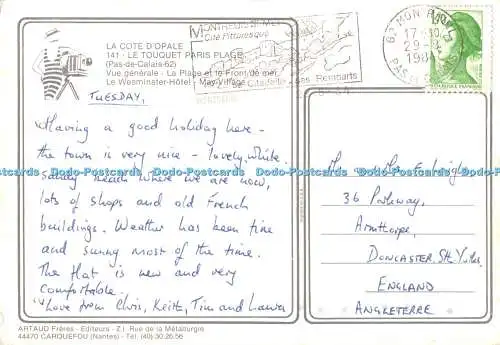 LA COTE D'OPALE
141 - LE TOUQUET PARIS PLAGE
(Pas-de-Calais-62)
Vue générale - La Plage et le Front de mer
Le Westminster-Hôtel - May-Village
MONTREUIL-S-MER
Cité Pittoresque
Citadelle Ses Remparts
62 MON
17-30
29-8
1984
PAS DE CALAIS
TUESDAY,
Having a good holiday here -
the town is very nice - lovely, white
sandy beach where we are now,
lots of shops and old French
buildings. Weather has been fine
and sunny most of the time.
The flat is new and very
comfortable.
Love from Chris, Keith, Tim and Laura
Mr Mrs
36 Parkway,
Armthorpe,
DONCASTER, Sth Yorks.
ENGLAND
ANGLETERRE
ARTAUD Frères - Editeurs - Z.I. Rue de la Métallurgie
44470 CARQUEFOU (Nantes) - Tél. (40) 30.26.56
Dodo-Postcards Dodo-Postcards Dodo-Postcards Dodo-Postcards